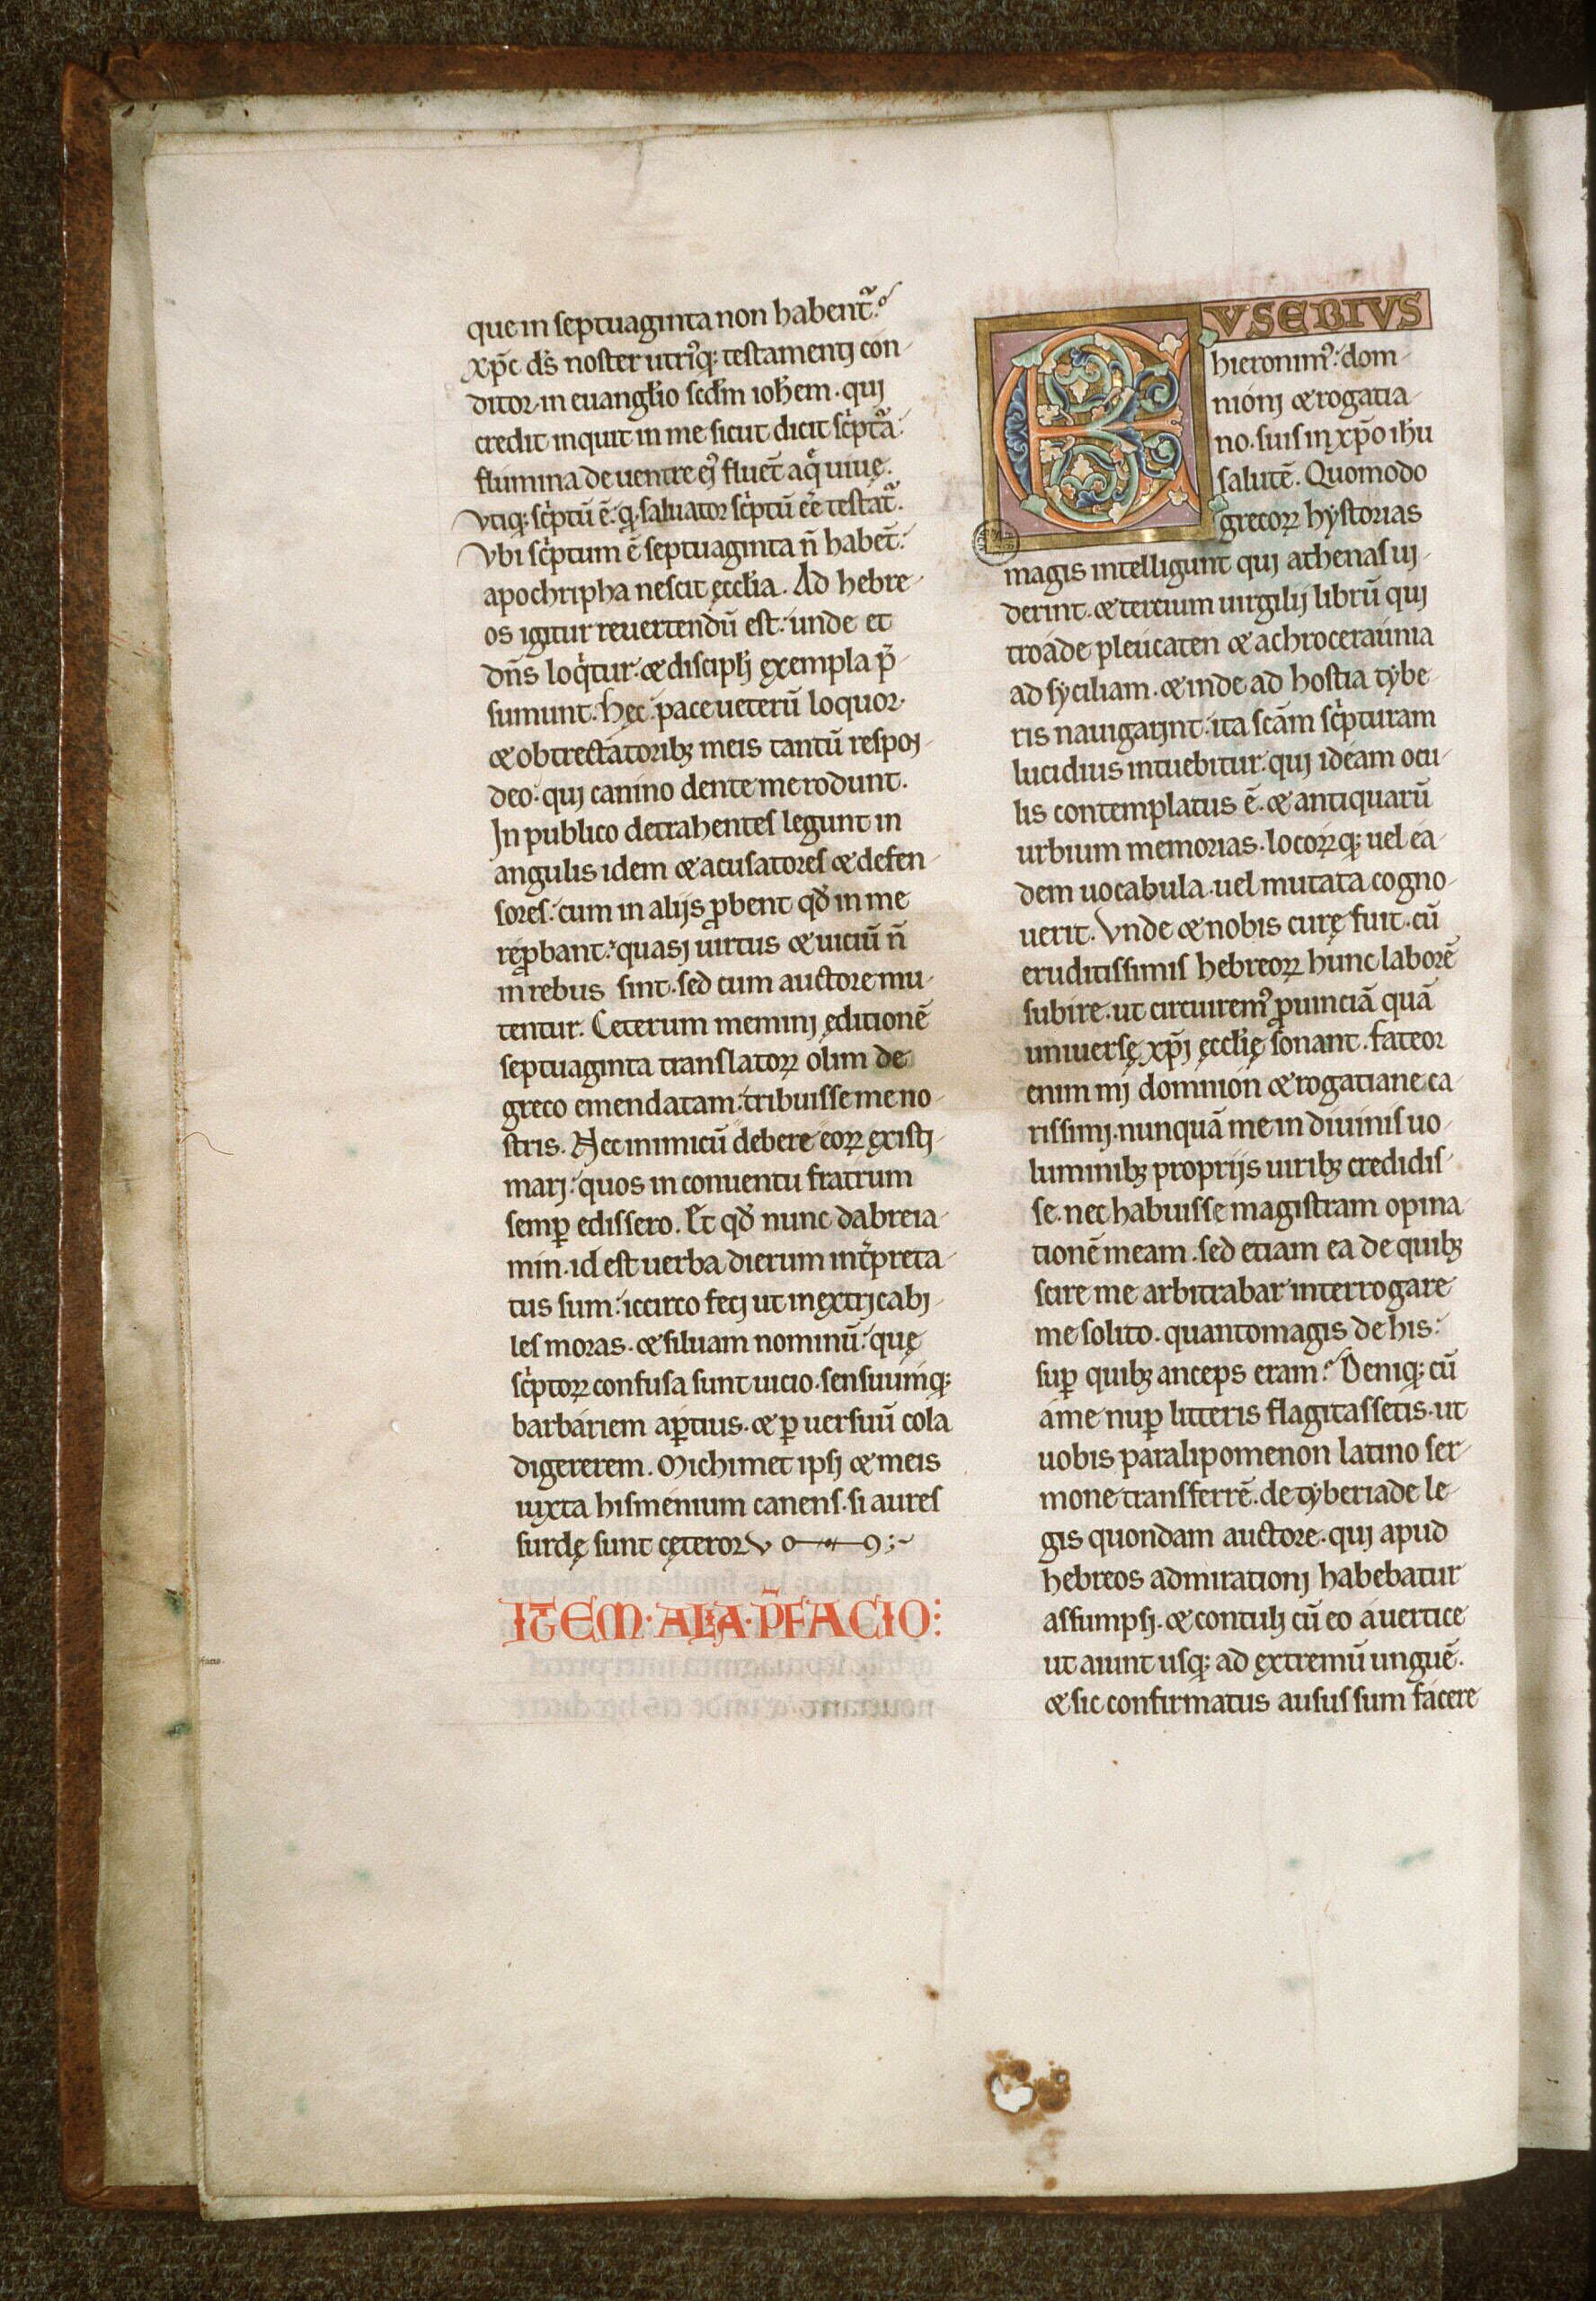 que in septuaginta non habent᷑.
xp̄c ds̄ noster utri᷒q; testamenti con-
ditor. in euanglīo scdm̄ ioh̄em. qui
credit inquit in me sicut dicit sc͛pt᷑a.
flumina de uentre ei᷒ fluēt aq͛ uiuę.
Vtiq; sc͛ptū ē. q͛ saluator sc͛ptū ēē testat᷑.
Vbi sc͛ptum ē septuaginta n̄ habēt.
apochripha nescit ęcclīa. Ad hebre-
os igitur reuertendū est. unde et
dn̄s loq͛tur. & discipli exempla p̄-
sumunt. Hęc pace ueterū loquor.
& obtrectatorib; meis tantū respon-
deo. qui canino dente me rodunt.
In publico detrahentes legunt in
angulis idem & acusatores & defen-
sores. cum in aliis ꝓbent qđ in me
reꝓbant. quasi uirtus & uiciū n̄
in rebus sint. sed cum auctore mu-
tentur. Ceterum memini ęditionē
septuaginta translatoꝝ olim de
greco emendatam. tribuisse me no-
stris. Nec inimicū debere eoꝝ existi-
mari. quos in conuentu fratrum
semꝑ edissero. Et qđ nunc dabreia-
min. id est uerba dierum int͛preta-
tus sum. iccirco feci ut inextricabi-
les moras. & siluam nominū. quę
sc͛ptoꝝ confusa sunt uicio. sensuumq;
barbariem aꝑtius. & ꝑ uersuū cola
digererem. Michimet ipsi & meis
iuxta hismenium canens. si aures
surdę sunt cęteroꝝ
ITEM. ALIA. P̄FACIO:
EVSEBIVS
hieronim᷒. dom-
nioni & rogatia-
no. suis in xp̄o ihū
salutē. Quomodo
grecoꝝ hystorias
magis intelligunt qui athenas ui-
derint. & tercium uirgilii librū qui
troade pleucaten & achroceraunia
ad syciliam. & inde ad hostia tybe-
ris nauigarint. ita scām sc͛pturam
lucidius intuebitur. qui ideam ocu-
lis contemplatus ē. & antiquarū
urbium memorias. locoꝝq; uel ea-
dem uocabula. uel mutata cogno-
uerit. Vnde & nobis curę fuit. cū
eruditissimis hebreoꝝ hunc laborē
subire. ut circuirem᷒ ꝓuinciā quā
uniuersę xp̄i ęcclīę sonant. fateor
enim mi domnion & rogatiane ca-
rissimi. nunquā me in diuinis uo-
luminib; propriis uirib; credidis-
se. nec habuisse magistram opina-
tionē meam. sed etiam ea de quib;
scire me arbitrabar interrogare
me solito. quantomagis de his.
suꝑ quib; anceps eram. Deniq; cū
a me nuꝑ litteris flagitassetis. ut
uobis paralipomenon latino ser-
mone transferrē. de tyberiade le-
gis quondam auctore. qui apud
hebreos admirationi habebatur
assumpsi. & contuli cū eo a uertice
ut aiunt usq; ad extremū unguē.
& sic confirmatus ausus sum facere